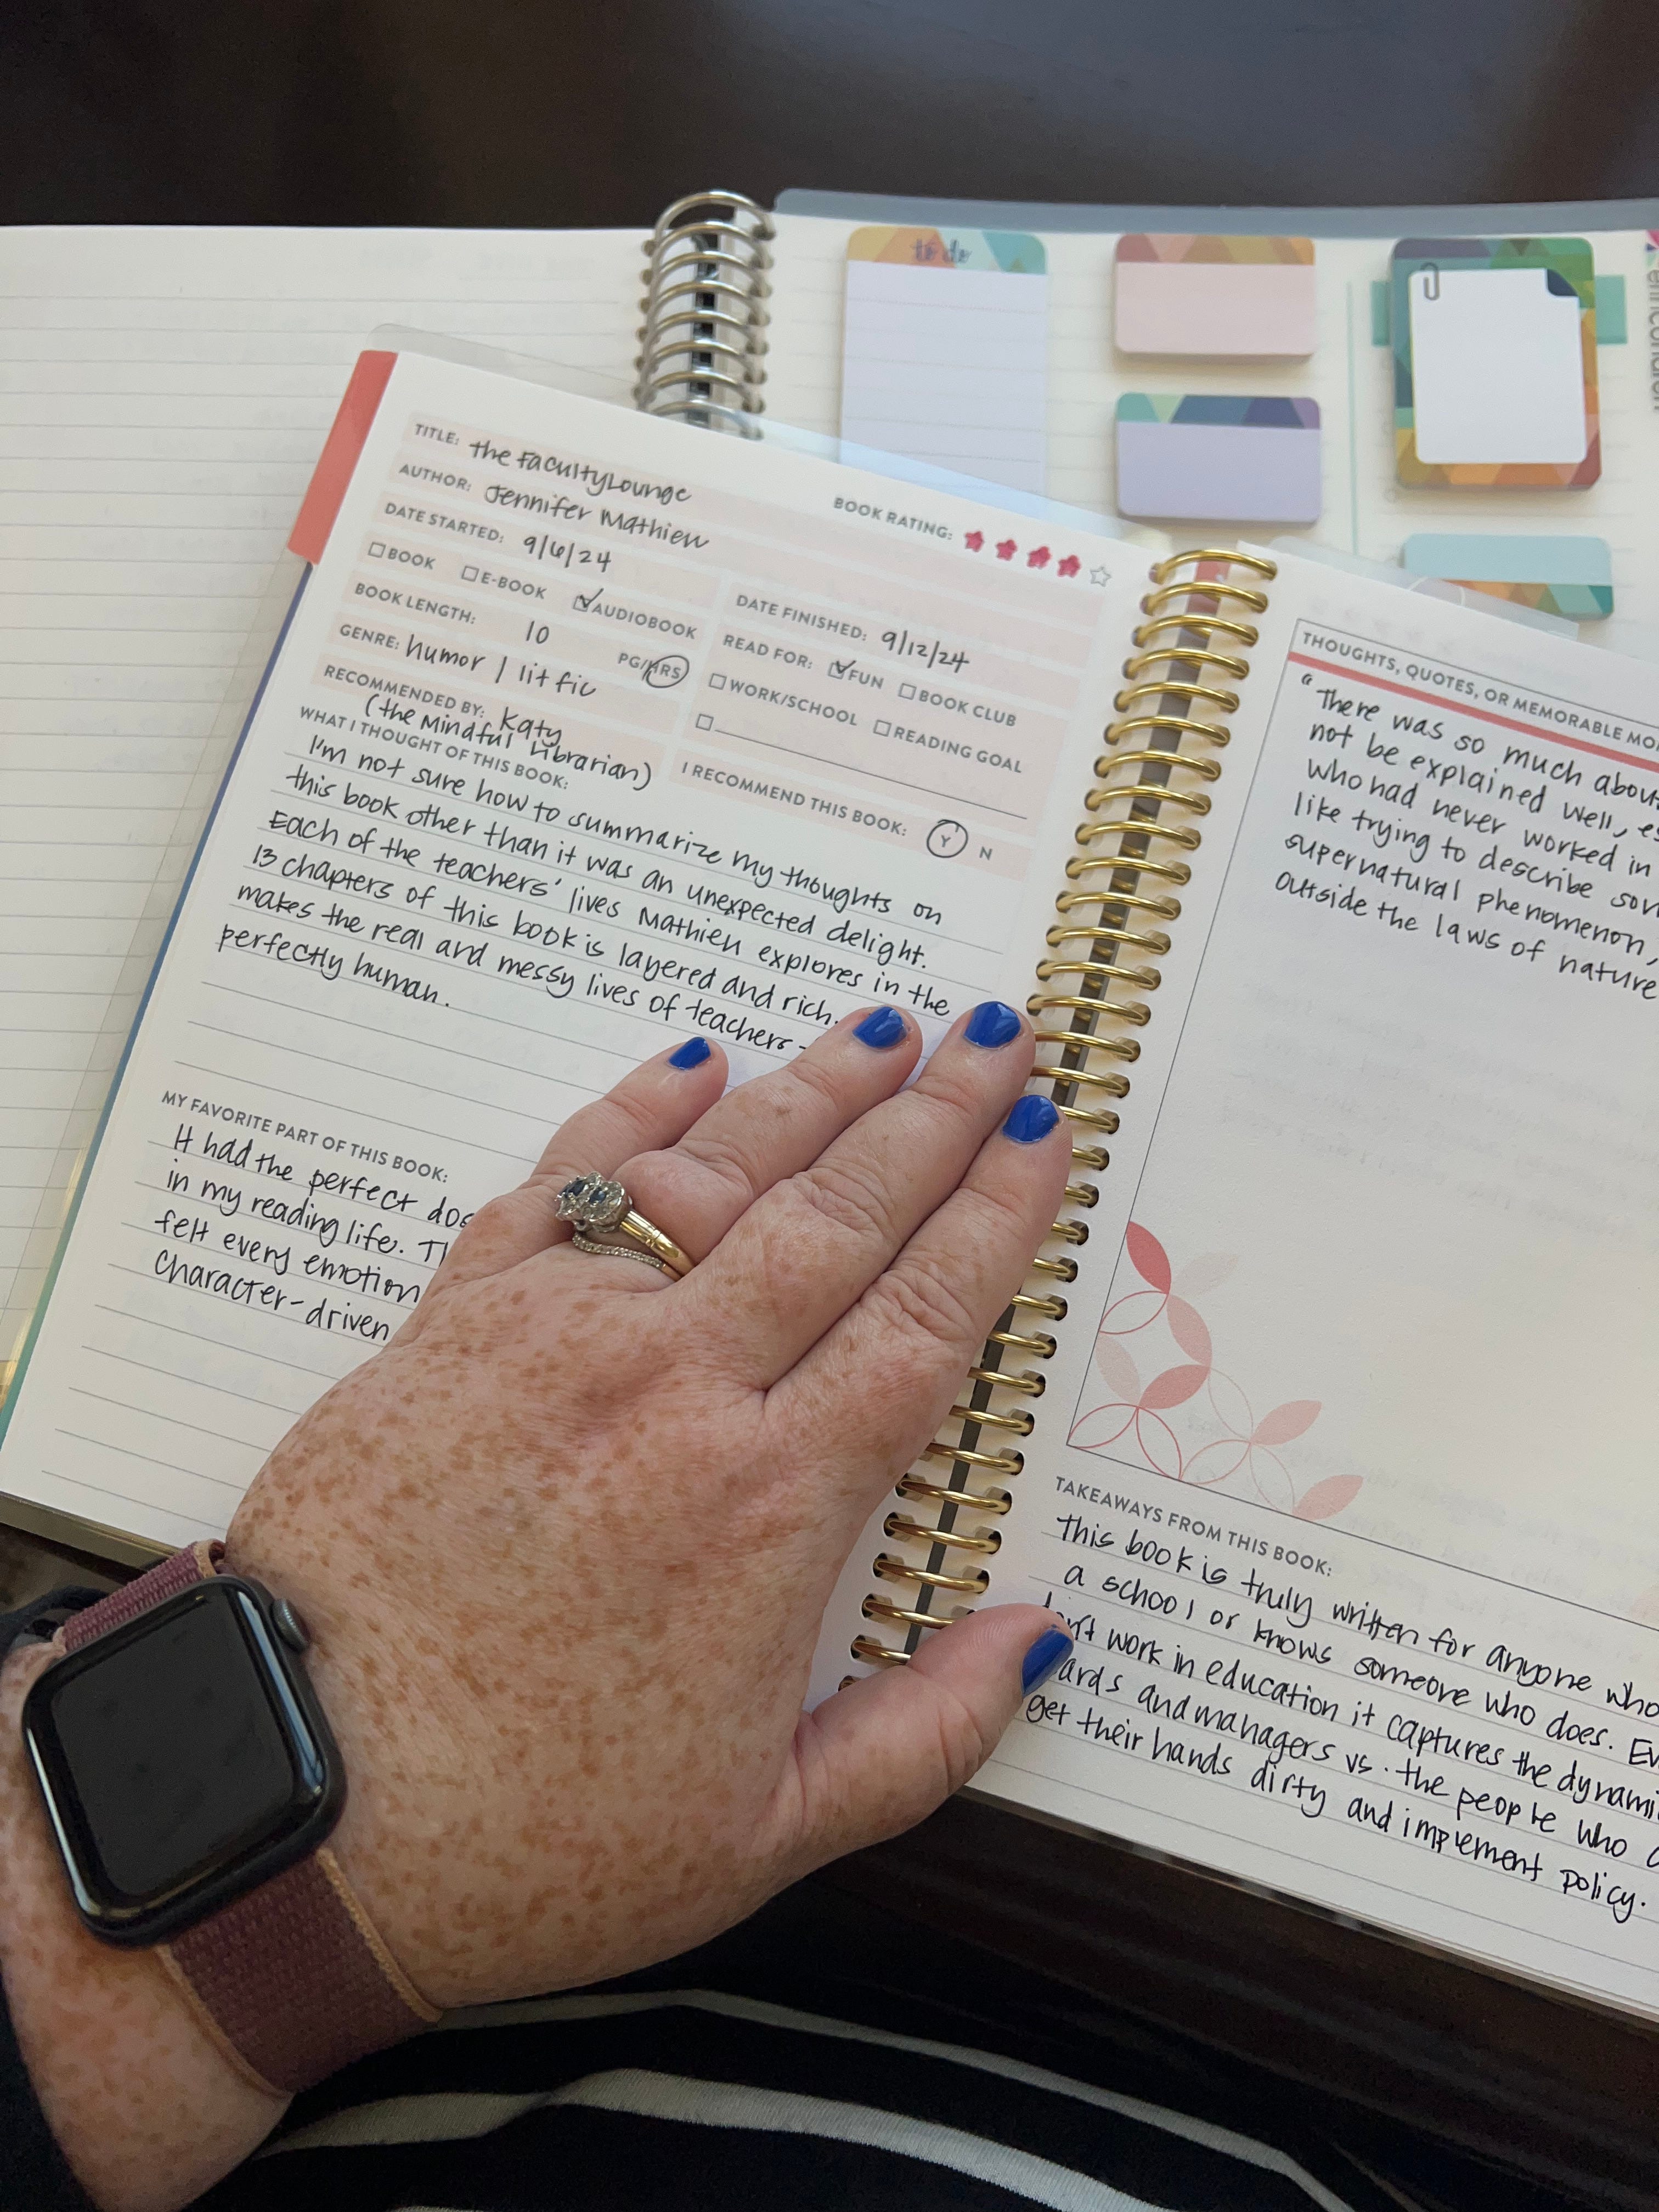 to do
TITLE: the Faculty Lounge
AUTHOR: Jennifer Mathieu
BOOK RATING:
DATE STARTED: 9/6/24
DATE FINISHED: 9/12/24
BOOK E-BOOK AUDIOBOOK
READ FOR: FUN BOOK CLUB
BOOK LENGTH: 10 PG/HRS
WORK/SCHOOL READING GOAL
GENRE: humor / lit fic
RECOMMENDED BY: Katy
(the Mindful Librarian)
I RECOMMEND THIS BOOK: Y N
WHAT I THOUGHT OF THIS BOOK:
I'm not sure how to summarize my thoughts on
this book other than it was an unexpected delight.
Each of the teachers' lives Mathieu explores in the
13 chapters of this book is layered and rich.
makes the real and messy lives of teachers -
perfectly human.
MY FAVORITE PART OF THIS BOOK:
It had the perfect
in my reading life.
felt every emotion
character-driven
THOUGHTS, QUOTES, OR MEMORABLE
"There was so much about
not be explained well,
who had never worked in
like trying to describe
supernatural phenomenon,
outside the laws of nature
TAKEAWAYS FROM THIS BOOK:
This book is truly written for anyone who
a school or knows someone who does.
work in education it captures the
and managers vs. the people who
get their hands dirty and implement policy.